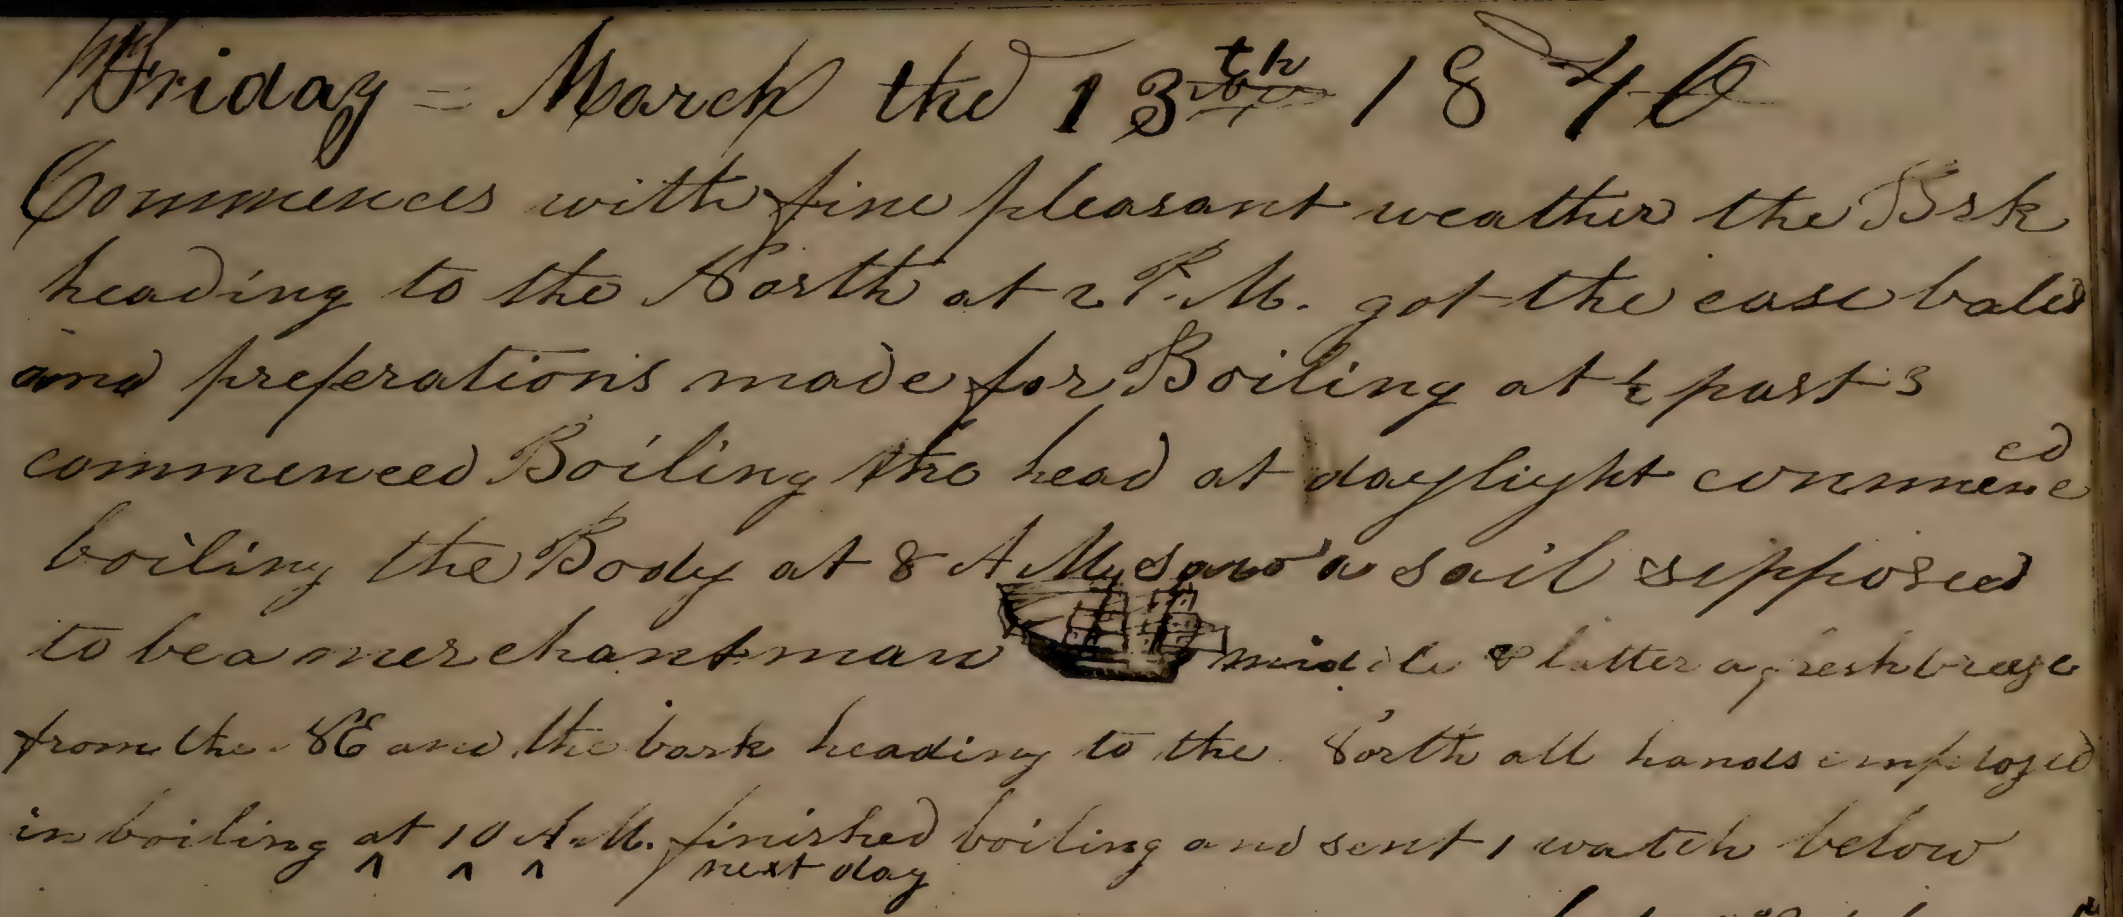 Friday = March the 13th 1840
Commences with fine pleasant weather the Brk
heading to the North at 2 P.M. got the case baled
and preferations made for Boiling at ½ past 3
commenced Boiling the head at daylight commenced
boiling the Body at 8 A M saw a sail sipposed
to be a merchantman middle & latter a fresh breeze
from the SE and the bark heading to the North all hands employed
in boiling at 10 A.M. finished boiling and sent 1 watch below
^ ^ ^ next day